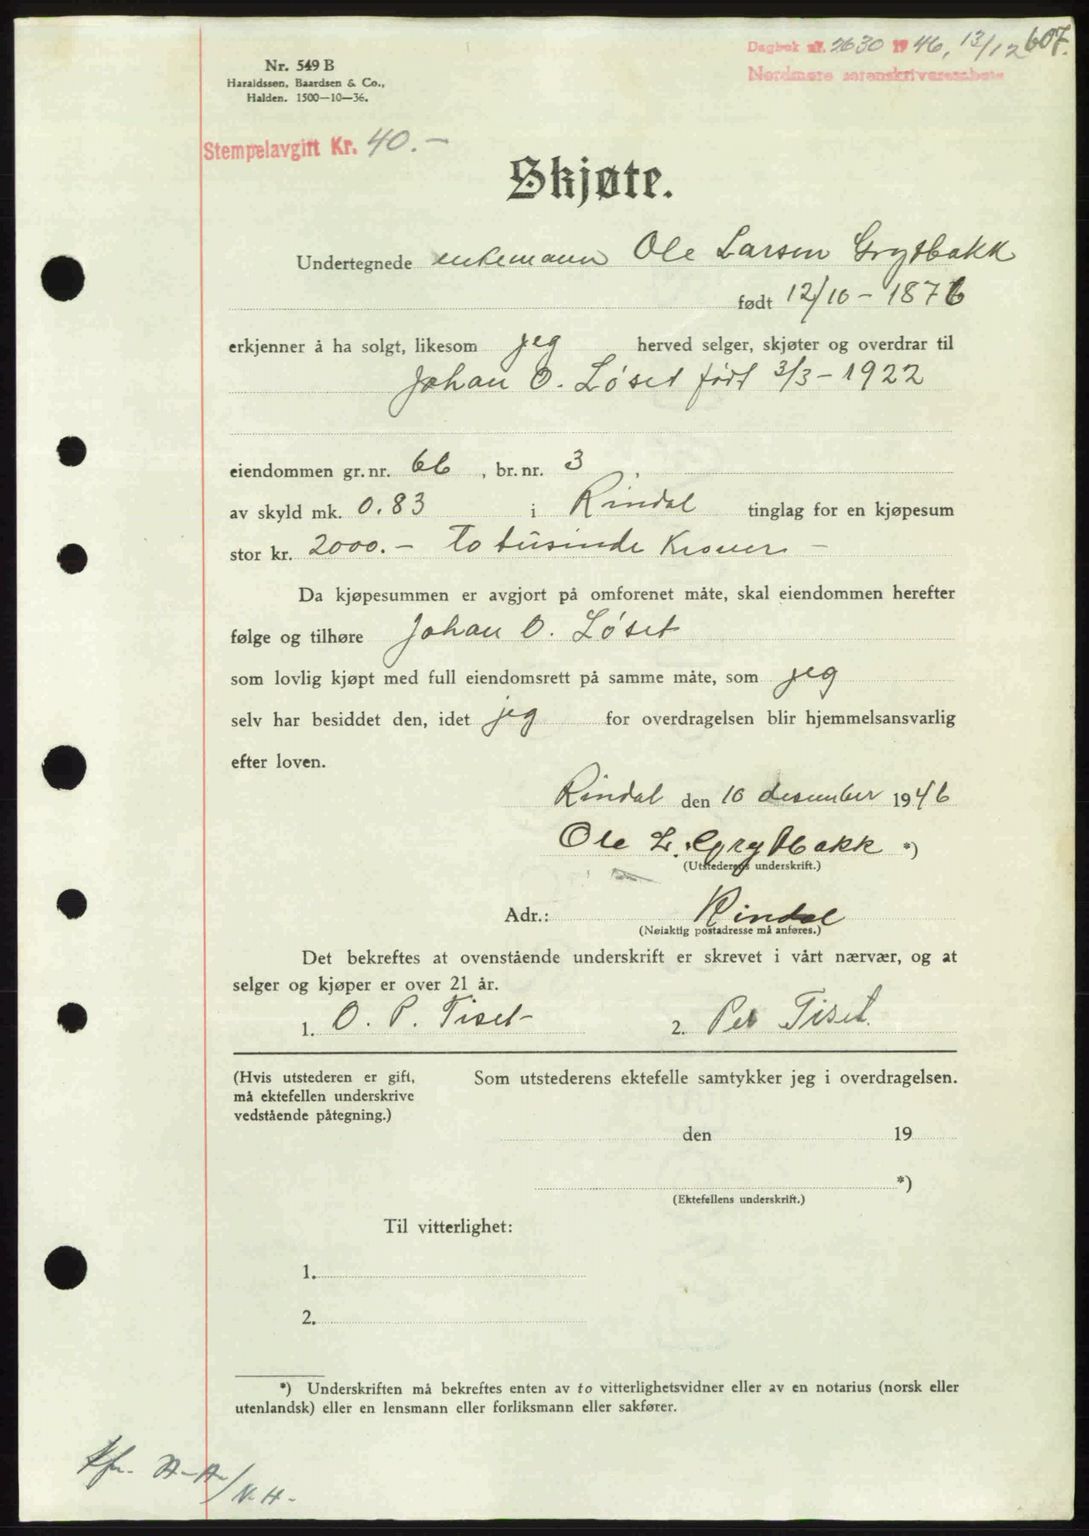 Dagbok nr. 2630 1946, 13/12 607.
Nordmøre sorenskriverembete
Nr. 549 B
Haraldssen, Baardsen & Co.,
Halden. 1500—10—36.
Stempelavgift Kr. 40.-
Skjøte.
Undertegnede enkemann Ole Larsen Grytbakk
født 12/10 - 1876
erkjenner å ha solgt, likesom jeg herved selger, skjøter og overdrar til
Johan O. Løset født 3/3 - 1922
eiendommen gr. nr. 66, br. nr. 3
av skyld mk. 0.83 i Rindal tinglag for en kjøpesum
stor kr. 2000.- To tusinde Kroner -
Da kjøpesummen er avgjort på omforenet måte, skal eiendommen herefter
følge og tilhøre Johan O. Løset
som lovlig kjøpt med full eiendomsrett på samme måte, som jeg
selv har besiddet den, idet jeg for overdragelsen blir hjemmelsansvarlig
efter loven.
Rindal den 10 desember 1946
Ole L. Grytbakk *)
(Utstederens underskrift.)
Adr.: Rindal
(Nøiaktig postadresse må anføres.)
Det bekreftes at ovenstående underskrift er skrevet i vårt nærvær, og at
selger og kjøper er over 21 år.
1. O. P. Tiset 2. Per Tiset.
(Hvis utstederen er gift, Som utstederens ektefelle samtykker jeg i overdragelsen.
må ektefellen underskrive
vedstående påtegning.)
den 19
*)
(Ektefellens underskrift.)
Til vitterlighet:
1.
2.
*) Underskriften må bekreftes enten av to vitterlighetsvidner eller av en notarius (norsk eller
utenlandsk) eller en lensmann eller forliksmann eller sakfører.
Kfr. A-A/N.H.